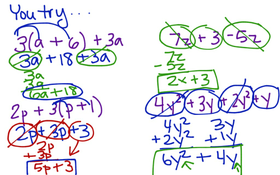 You try...
3(a + 6) + 3a
3a + 18 + 3a
3a
3a
6a + 18
2p + 3(p + 1)
2p + 3p + 3
2p
+ 3p
5p + 3
7z + 3 - 5z
7z
- 5z
2x + 3
4y² + 3y + 2y² + y
4y² 3y
+ 2y² + 1y
6y² + 4y